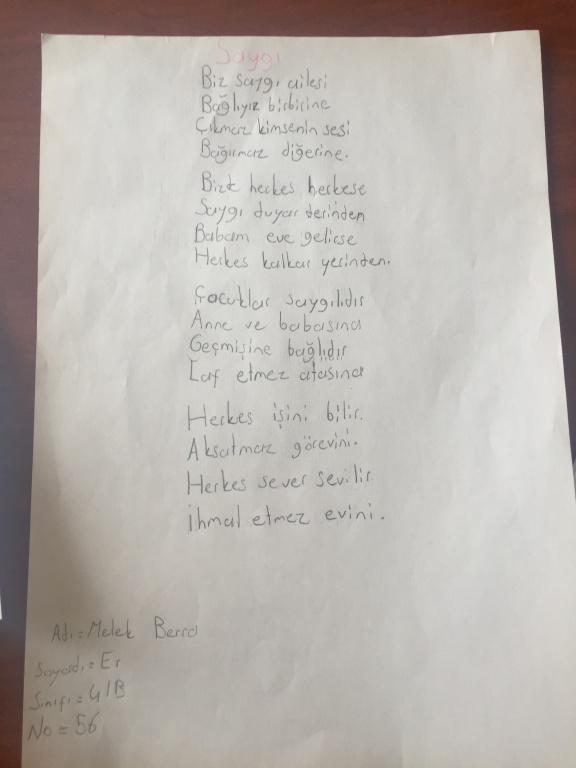 Saygı
Biz saygı ailesi
Bağlıyız birbirine
Çıkmaz kimsenin sesi
Bağırmaz diğerine.
Bizde herkes herkese
Saygı duyar derinden
Babam eve gelirse
Herkes kalkar yerinden.
Çocuklar saygılıdır
Anne ve babasına
Geçmişine bağlıdır
Laf etmez atasına
Herkes işini bilir.
Aksatmaz görevini.
Herkes sever sevilir
İhmal etmez evini.
Adı = Melek Berra
Soyadı = Er
Sınıfı = 4/B
No = 56